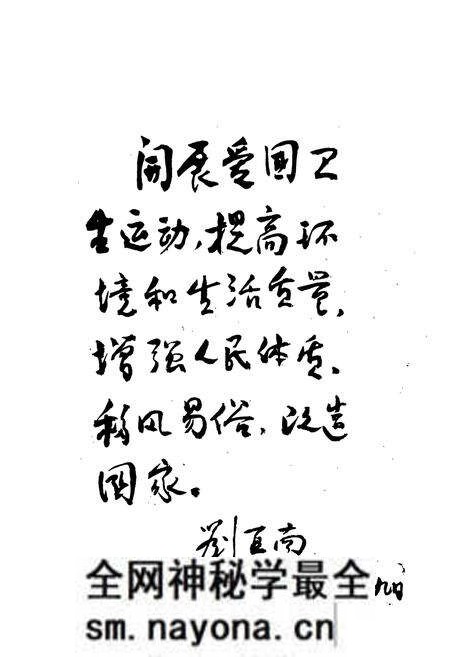 開展爱国卫
生运动,提高环
境和生活质量,
增强人民体质、
移风易俗,改造
国家。
全网神秘学最全
sm.nayona.cn